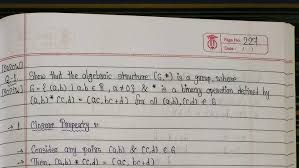 Page No. 227
Date: / /
Q-1 Show that the algebraic structure (G,*) is a group, where
G = {(a,b) | a,b ∈ R, a≠0} & * is a binary operation defined by
(a,b) * (c,d) = (ac, bc+d) for all (a,b), (c,d) ∈ G
→ 1. Closure Property :-
→ Consider any pairs (a,b) & (c,d) ∈ G
→ Then, (a,b) * (c,d) = (ac, bc+d)